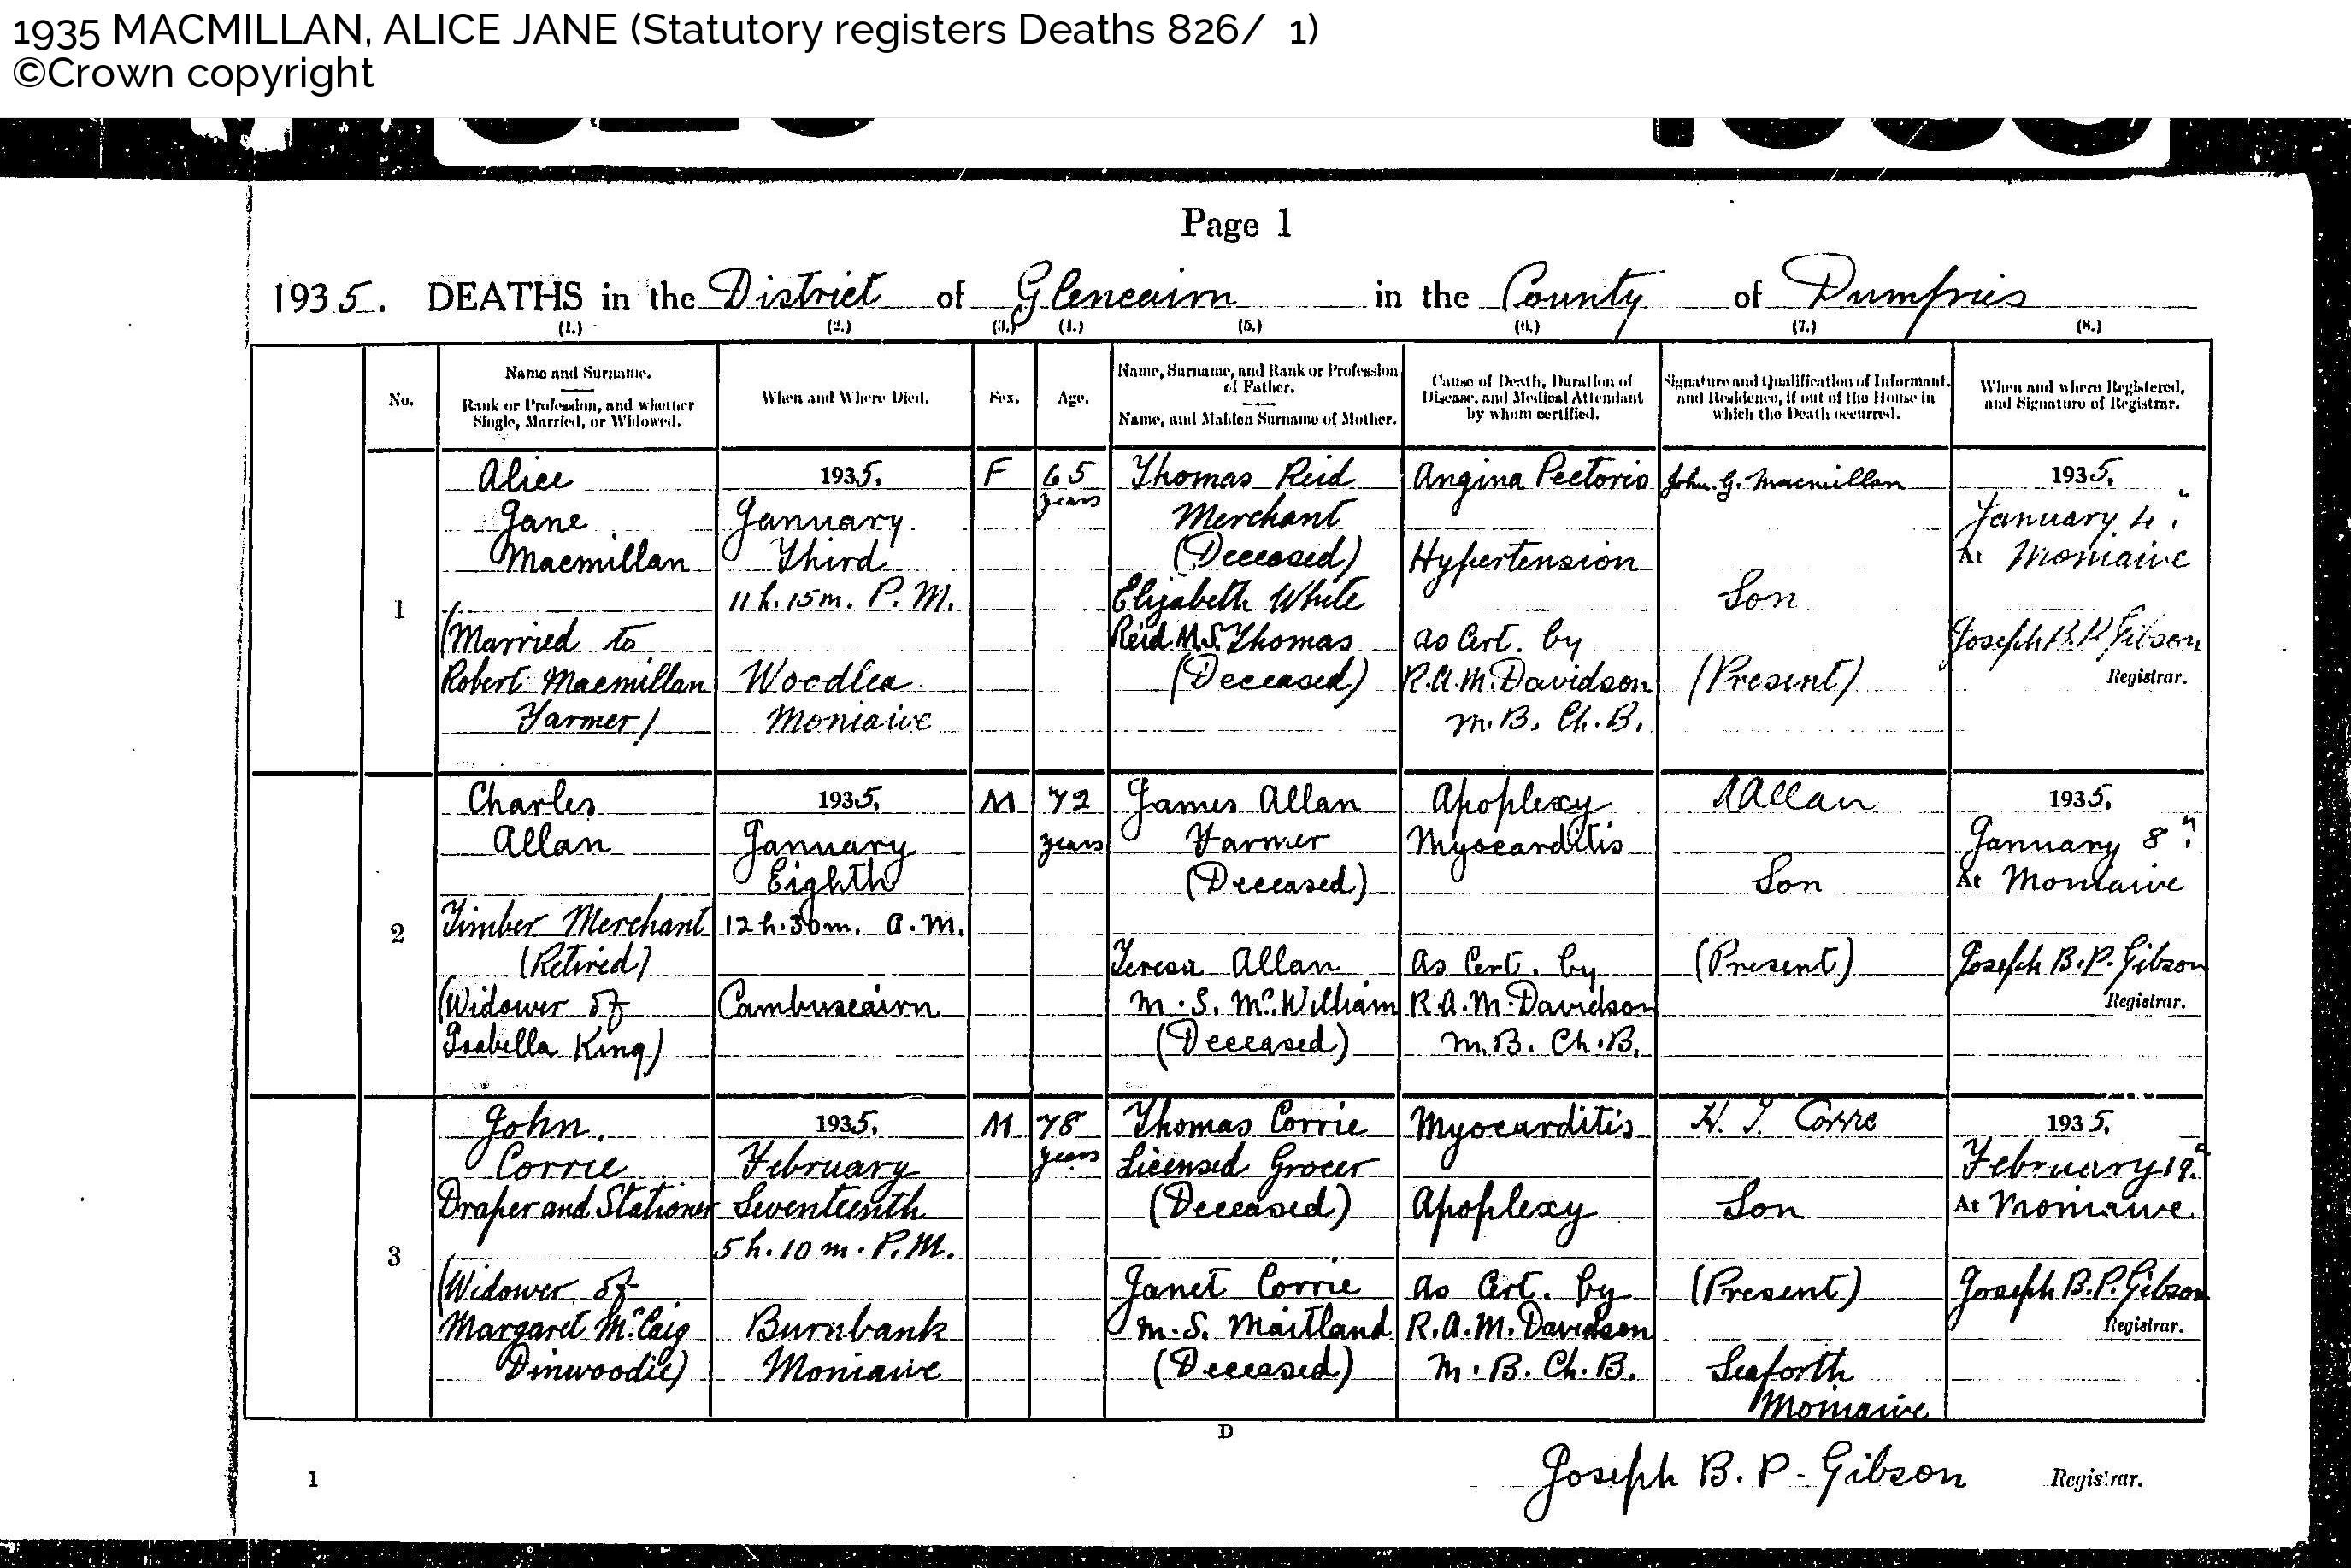 1935 MACMILLAN, ALICE JANE (Statutory registers Deaths 826/ 1)
©Crown copyright
Page 1
1935. DEATHS in the District of Glencairn in the County of Dumfries
(1.) (2.) (3.) (4.) (5.) (6.) (7.) (8.)
No.
Name and Surname.
Rank or Profession, and whether
Single, Married, or Widowed.
When and Where Died.
Sex.
Age.
Name, Surname, and Rank or Profession
of Father.
Name, and Maiden Surname of Mother.
Cause of Death, Duration of
Disease, and Medical Attendant
by whom certified.
Signature and Qualification of Informant,
and Residence, if out of the House in
which the Death occurred.
When and where Registered,
and Signature of Registrar.
1
Alice
Jane
Macmillan
(Married to
Robert Macmillan
Farmer)
1935.
January
Third
11 h. 15 m. P.M.
Woodlea
Moniaive
F
65
years
Thomas Reid
Merchant
(Deceased)
Elizabeth White
Reid M.S. Thomas
(Deceased)
Angina Pectoris
Hypertension
as Cert. by
R.A.M. Davidson
M.B. Ch.B.
John. G. Macmillan
Son
(Present)
1935.
January 4"
At Moniaive
Joseph B.P. Gibson
Registrar.
2
Charles
Allan
Timber Merchant
(Retired)
(Widower of
Isabella King)
1935.
January
Eighth
12 h. 30 m. A.M.
Cambuscairn
M
72
years
James Allan
Farmer
(Deceased)
Teresa Allan
M.S. McWilliam
(Deceased)
Apoplexy
Myocarditis
as Cert. by
R.A.M. Davidson
M.B. Ch.B.
Allan
Son
(Present)
1935.
January 8"
At Moniaive
Joseph B.P. Gibson
Registrar.
3
John
Corrie
Draper and Stationer
(Widower of
Margaret McCaig
Dinwoodie)
1935.
February
Seventeenth
5 h. 10 m. P.M.
Burnbank
Moniaive
M
78
years
Thomas Corrie
Licensed Grocer
(Deceased)
Janet Corrie
M.S. Maitland
(Deceased)
Myocarditis
Apoplexy
as Cert. by
R.A.M. Davidson
M.B. Ch.B.
Corrie
Son
(Present)
Seaforth
Moniaive
1935.
February 19"
At Moniaive
Joseph B.P. Gibson
Registrar.
D
1
Joseph B. P. Gibson Registrar.